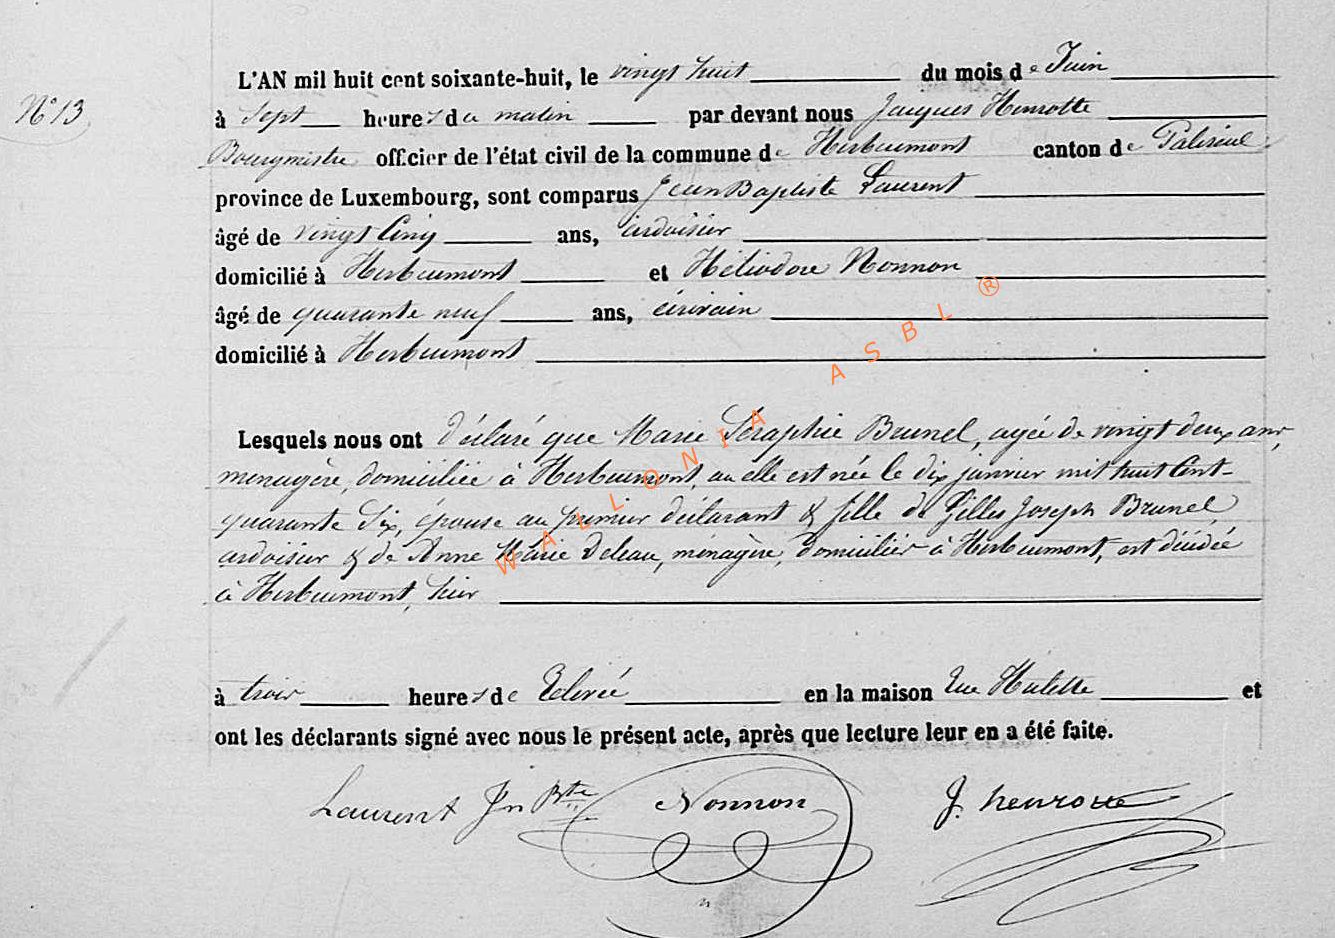 L'AN mil huit cent soixante-huit, le vingt huit du mois de Juin
N° 13
à Sept heures du matin par devant nous Jacques Henrotte
Bourgmestre officier de l'état civil de la commune de Herbeumont canton de Paliseul
province de Luxembourg, sont comparus Jean Baptiste Laurent
âgé de vingt Cinq ans, ardoisier
domicilié à Herbeumont et Héliodore Nonnon
âgé de quarante neuf ans, écrivain
domicilié à Herbeumont
Lesquels nous ont déclaré que Marie Séraphie Brunel, agée de vingt deux ans,
menagère, domiciliée à Herbeumont, ou elle est née le dix janvier mil huit Cent-
quarante Six, épouse au premier déclarant & fille de Gilles Joseph Brunel,
ardoisier & de Anne Marie Deleau, ménagère, domiciliés à Herbeumont, est décédée
à Herbeumont, hier
à trois heures de Relevée en la maison rue Hulette et
ont les déclarants signé avec nous le présent acte, après que lecture leur en a été faite.
Laurent Jn Bte Nonnon J. henrotte
WALLONIA ASBL ®